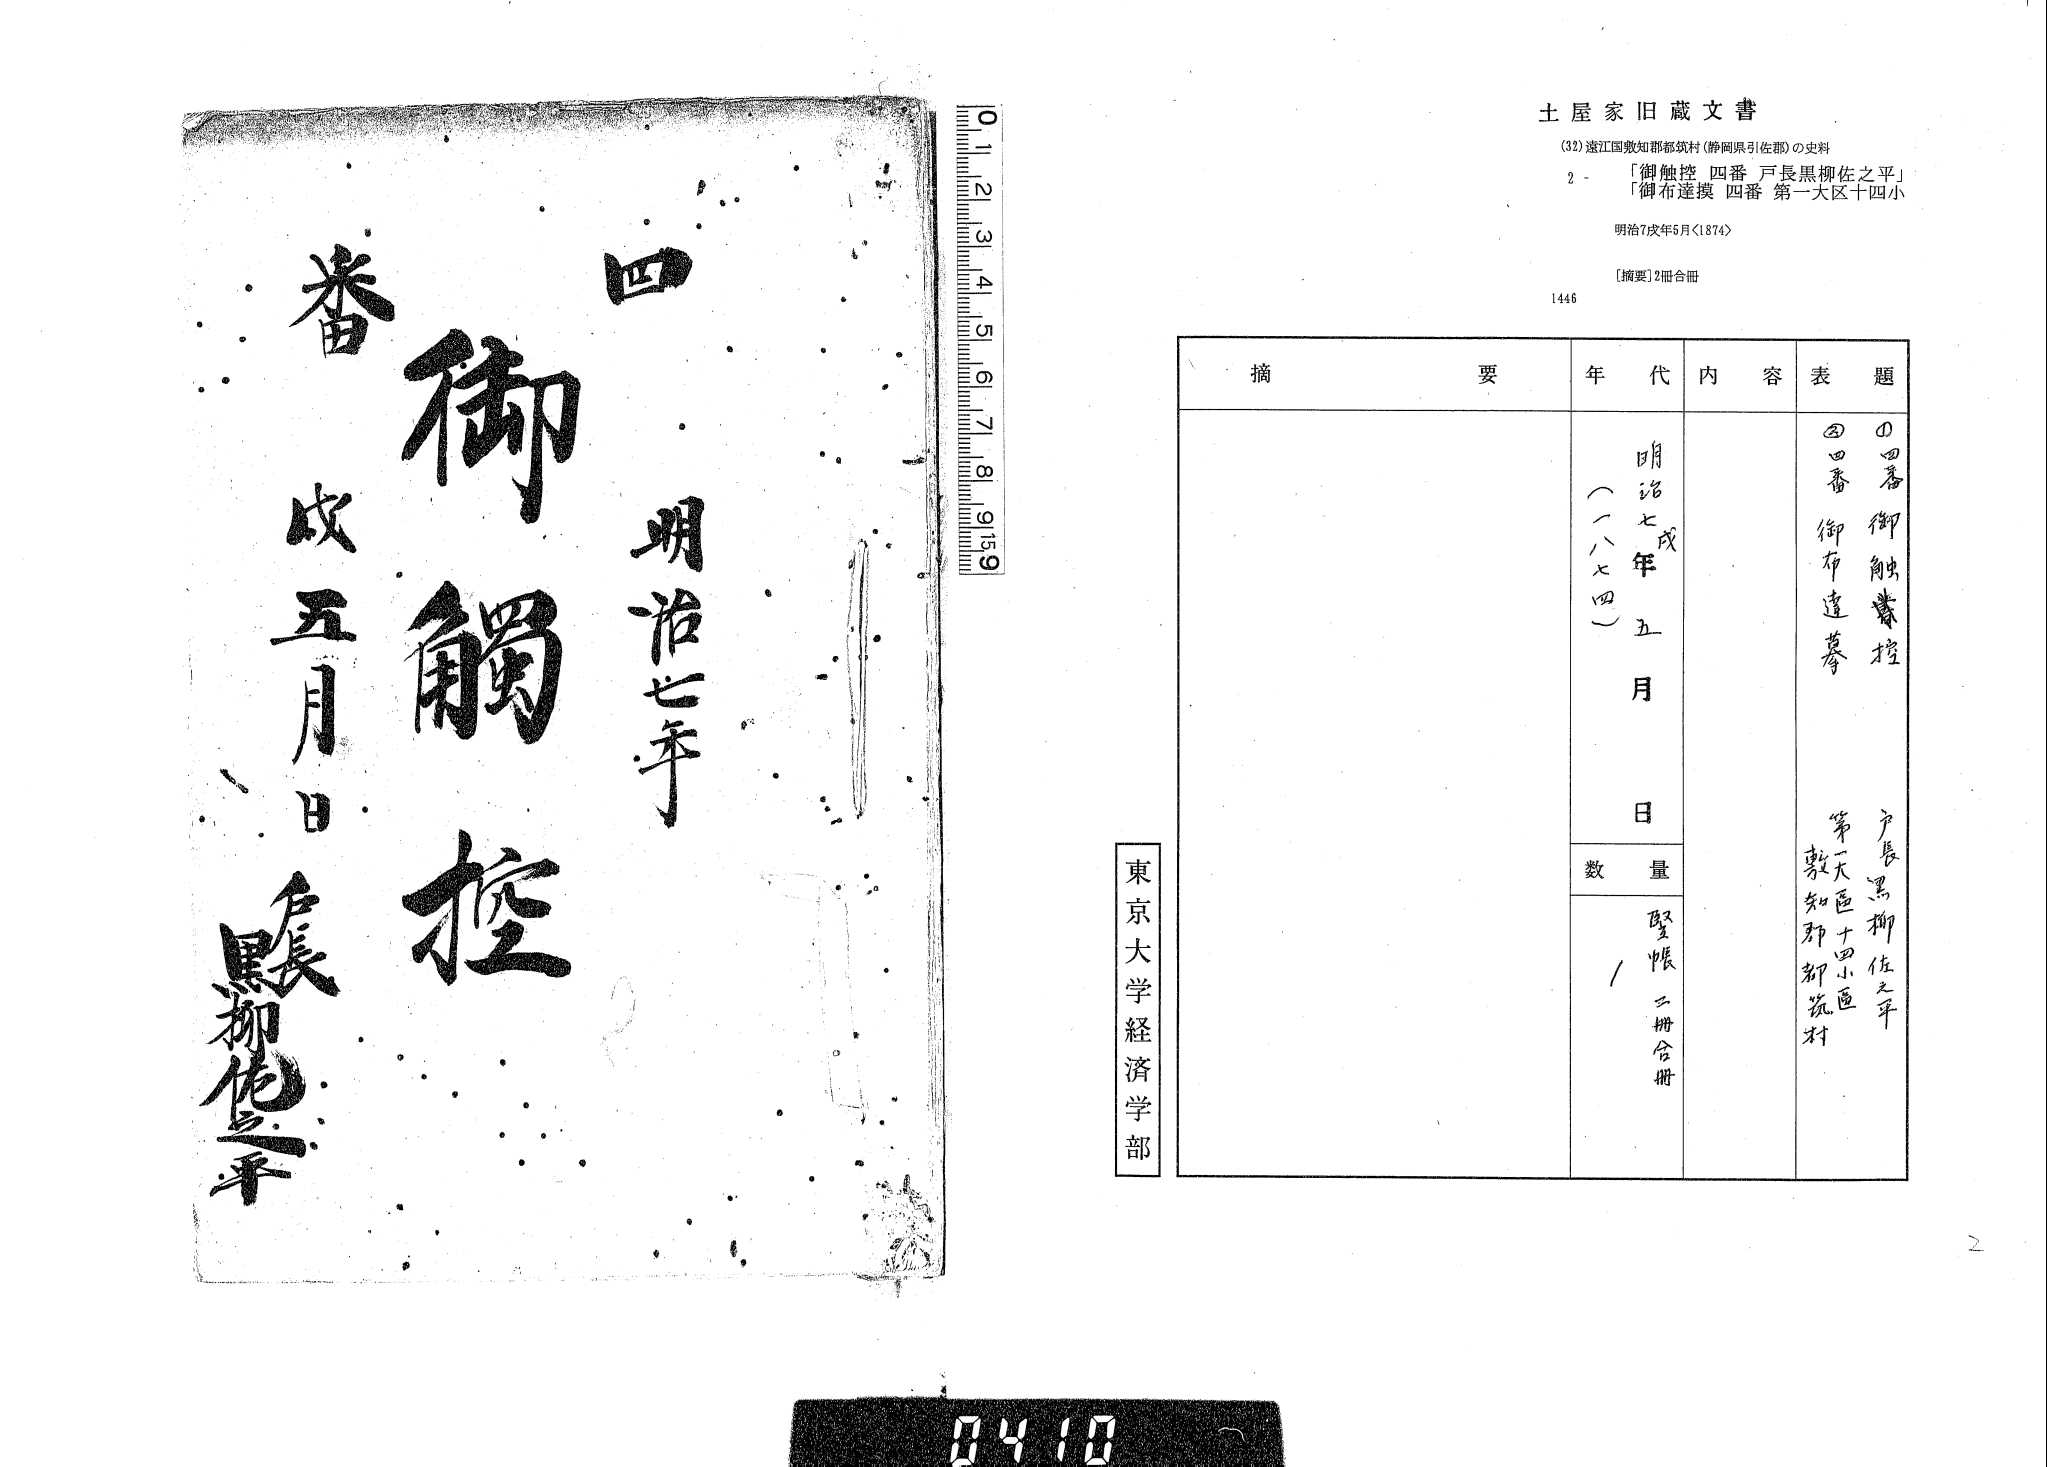 土屋家旧蔵文書
(32)遠江国敷知郡都筑村(静岡県引佐郡)の史料
2 - 「御触控 四番 戸長黒柳佐之平」
「御布達摸 四番 第一大区十四小
明治7戌年5月<1874>
[摘要]2冊合冊
1446
表題
①四番 御触控 戸長黒柳佐之平
②四番 御布達摹 第一大區十四小區
敷知郡都筑村
内容
年代
明治七戌年五月 日
(一八七四)
数量
竪帳 二冊合冊
1
摘要
東京大学経済学部
2
0 1 2 3 4 5 6 7 8 9 15 9
四
明治七年
御觸控
番
戌五月日
戸長
黒柳佐之平
0410